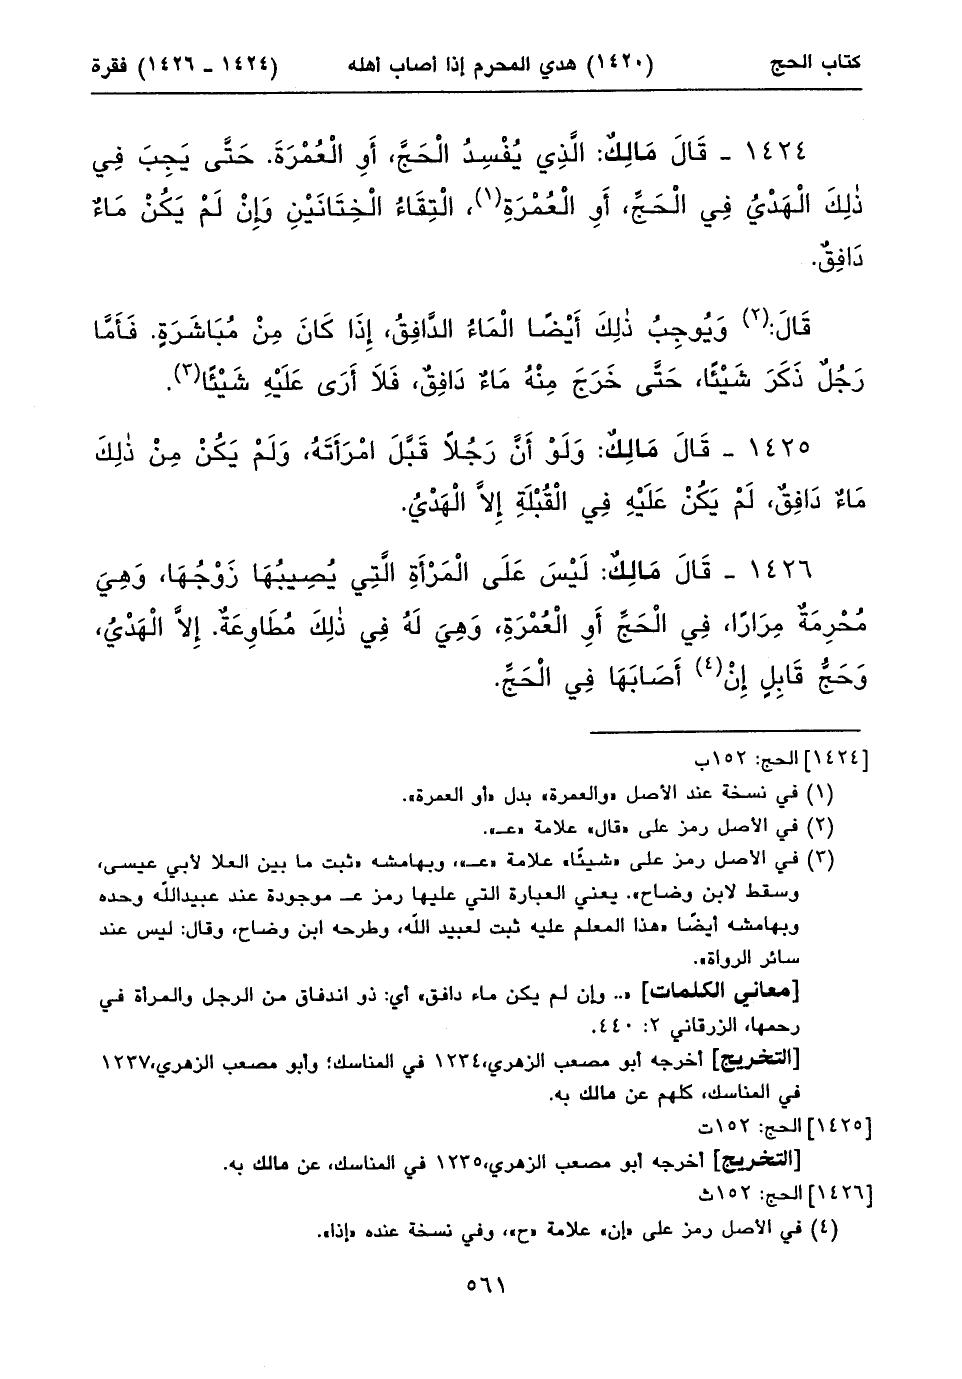 كتاب الحج (١٤٢٠) هدي المحرم إذا أصاب أهله (١٤٢٤ ـ ١٤٢٦) فقرة
١٤٢٤ ـ قَالَ مَالِكٌ: الَّذِي يُفْسِدُ الْحَجَّ، أَوِ الْعُمْرَةَ. حَتَّى يَجِبَ فِي
ذٰلِكَ الْهَدْيُ فِي الْحَجِّ، أَوِ الْعُمْرَةِ(١)، الْتِقَاءُ الْخِتَانَيْنِ وَإِنْ لَمْ يَكُنْ مَاءٌ
دَافِقٌ.
قَالَ:(٢) وَيُوجِبُ ذٰلِكَ أَيْضًا الْمَاءُ الدَّافِقُ، إِذَا كَانَ مِنْ مُبَاشَرَةٍ. فَأَمَّا
رَجُلٌ ذَكَرَ شَيْئًا، حَتَّى خَرَجَ مِنْهُ مَاءٌ دَافِقٌ، فَلاَ أَرَى عَلَيْهِ شَيْئًا(٣).
١٤٢٥ ـ قَالَ مَالِكٌ: وَلَوْ أَنَّ رَجُلاً قَبَّلَ امْرَأَتَهُ، وَلَمْ يَكُنْ مِنْ ذٰلِكَ
مَاءٌ دَافِقٌ، لَمْ يَكُنْ عَلَيْهِ فِي الْقُبْلَةِ إِلاَّ الْهَدْيُ.
١٤٢٦ ـ قَالَ مَالِكٌ: لَيْسَ عَلَى الْمَرْأَةِ الَّتِي يُصِيبُهَا زَوْجُهَا، وَهِيَ
مُحْرِمَةٌ مِرَارًا، فِي الْحَجِّ أَوِ الْعُمْرَةِ، وَهِيَ لَهُ فِي ذٰلِكَ مُطَاوِعَةٌ. إِلاَّ الْهَدْيُ،
وَحَجُّ قَابِلٍ إِنْ(٤) أَصَابَهَا فِي الْحَجِّ.
[١٤٢٤] الحج: ١٥٢ب
(١) في نسخة عند الأصل «والعمرة» بدل «أو العمرة».
(٢) في الأصل رمز على «قال» علامة «عـ».
(٣) في الأصل رمز على «شيئًا» علامة «عـ»، وبهامشه «ثبت ما بين العلا لأبي عيسى،
وسقط لابن وضاح». يعني العبارة التي عليها رمز عـ موجودة عند عبيدالله وحده
وبهامشه أيضًا «هذا المعلم عليه ثبت لعبيد الله، وطرحه ابن وضاح، وقال: ليس عند
سائر الرواة».
[معاني الكلمات] «.. وإن لم يكن ماء دافق» أي: ذو اندفاق من الرجل والمرأة في
رحمها، الزرقاني ٢: ٤٤٠.
[التخريج] أخرجه أبو مصعب الزهري،١٢٣٤ في المناسك؛ وأبو مصعب الزهري،١٢٣٧
في المناسك، كلهم عن مالك به.
[١٤٢٥] الحج: ١٥٢ت
[التخريج] أخرجه أبو مصعب الزهري،١٢٣٥ في المناسك، عن مالك به.
[١٤٢٦] الحج: ١٥٢ث
(٤) في الأصل رمز على «إن» علامة «ح»، وفي نسخة عنده «إذا».
٥٦١